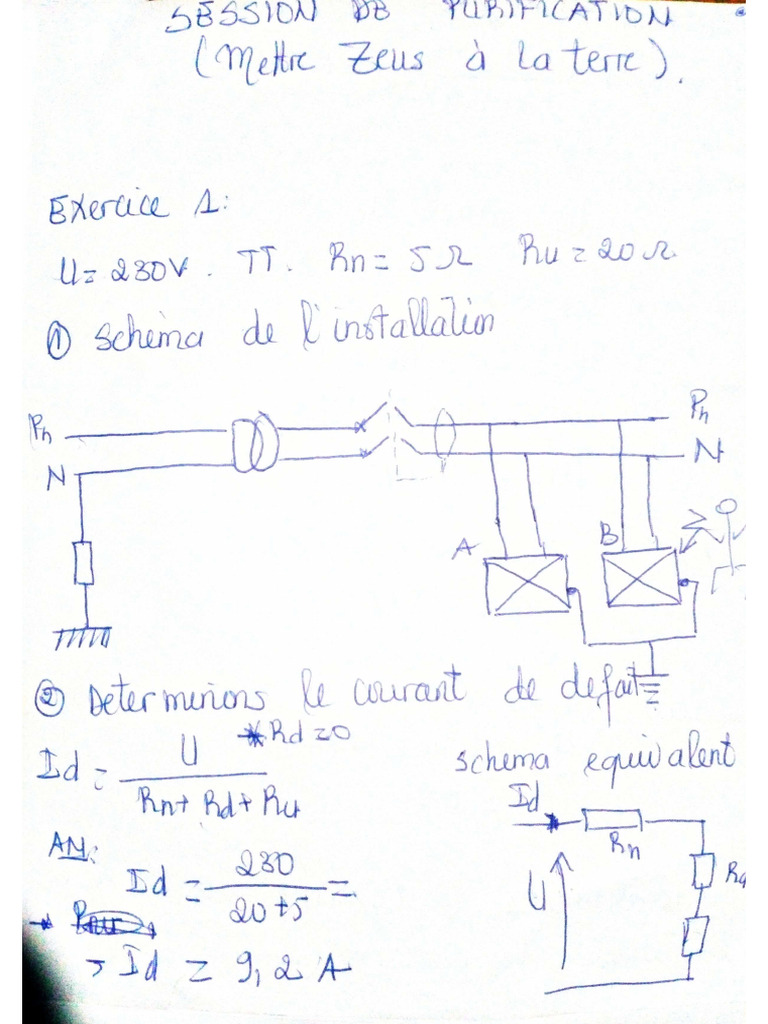 SESSION DE PURIFICATION
(Mettre Zeus à la terre).
Exercice 1:
U= 230V. TT. Rn= 5Ω Ru = 20Ω
① schema de l'installation
Ph
N
Ph
N
A
B
② Determinons le courant de defaut
Id = U / Rn+ Rd+ Ru
* Rd = 0
schema equivalent
Id
Rn
Rd
U
AN:
Id = 230 / 20+5 =
→ Id = 9,2 A